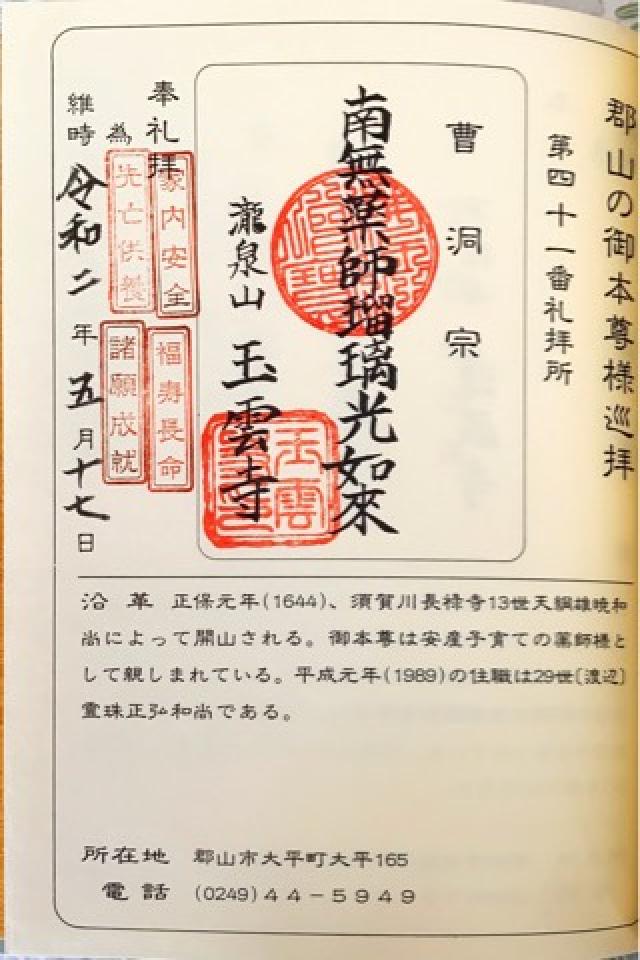 郡山の御本尊様巡拝
第四十一番礼拝所
曹洞宗
南無薬師瑠璃光如来
瀧泉山 玉雲寺
玉雲
奉礼拝
家内安全
福寿長命
為
先亡供養
諸願成就
維時 令和二年五月十七日
沿革 正保元年(1644)、須賀川長禄寺13世天綱雄暁和
尚によって開山される。御本尊は安産子育ての薬師様と
して親しまれている。平成元年(1989)の住職は29世〔渡辺〕
霊珠正弘和尚である。
所在地 郡山市大平町大平165
電話 (0249)44-5949